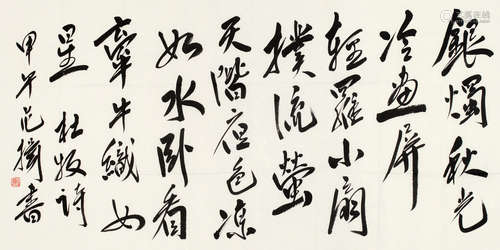 銀燭秋光
冷畫屏
輕羅小扇
撲流螢
天階夜色凉
如水卧看
牽牛織女
星 杜牧詩
甲午范書